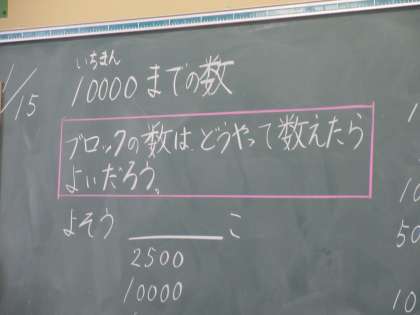 /15
いちまん
10000までの数
ブロックの数は、どうやって数えたら
よいだろう。
よそう ______ こ
2500
10000